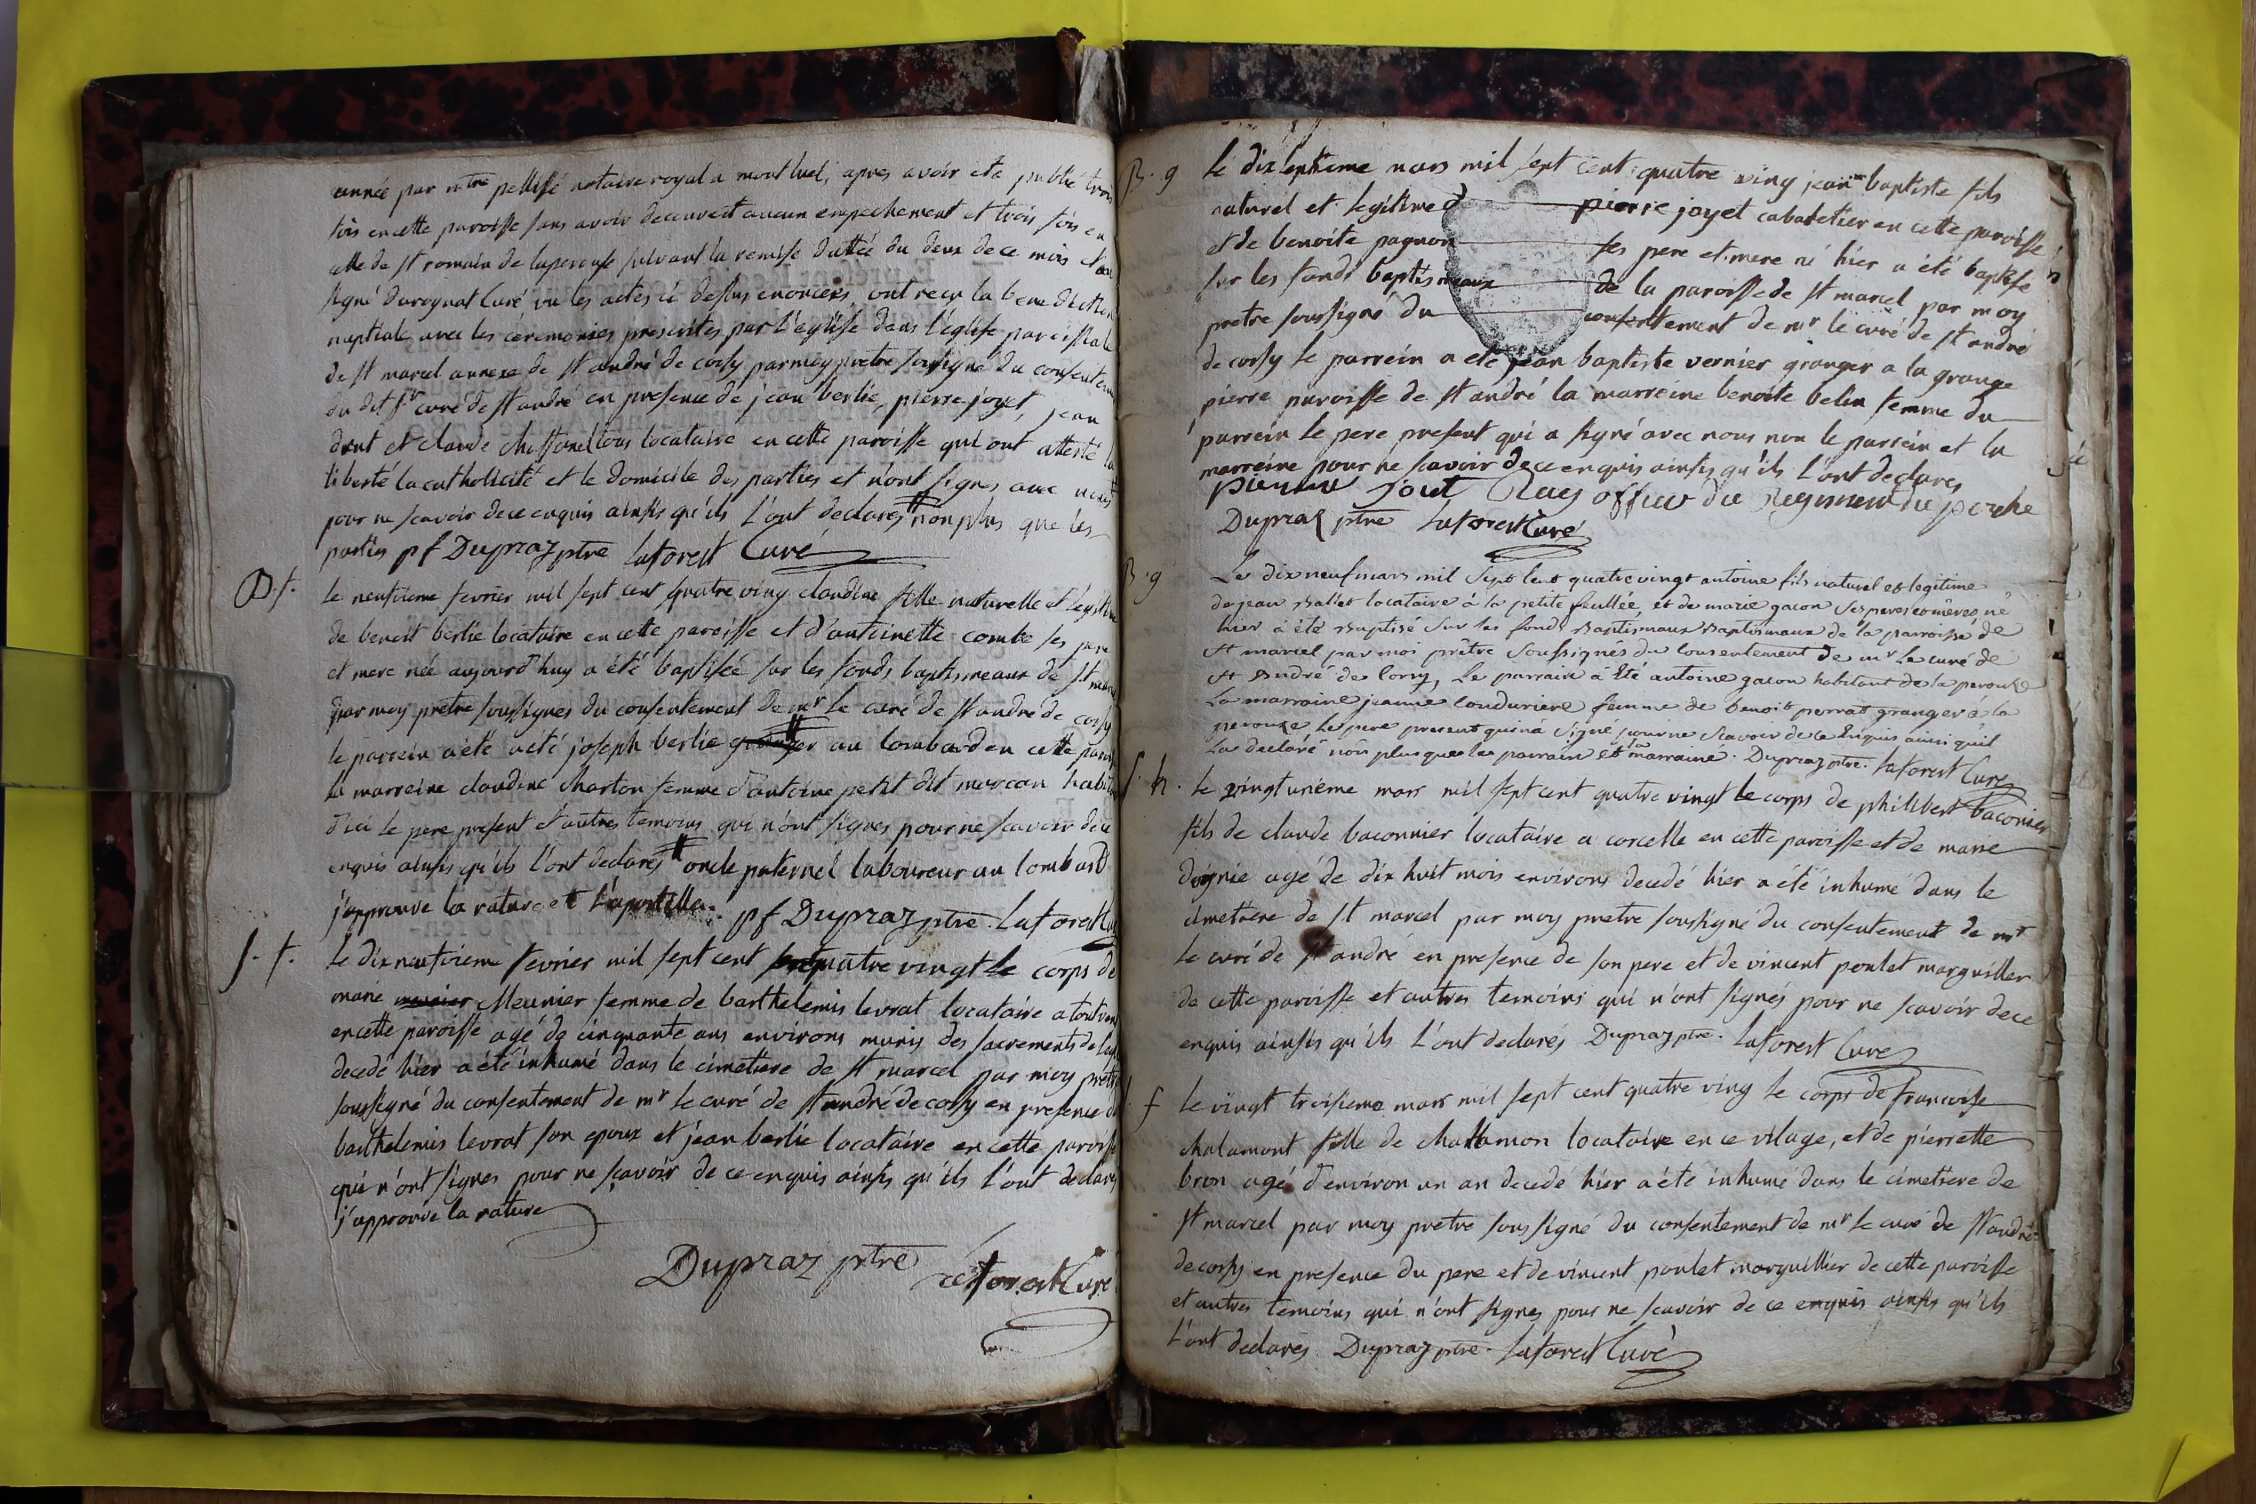 année par ntre pellissé notaire royal a montluel, apres avoir eté publié trois
fois en cette paroisse sans avoir decouvert aucun empechement et trois fois en
celle de st romain de suivant la remise dattée du deux de ce mois
signé curé vu les actes ci dessus enoncées, ont recu la benediction
nuptiale avec les céremonies prescrites par l'eglise dans l'église paroissiale
de st marcel annexe de st andré de corsy par moy pretre soussigné du consentem
du dit sr curé de st andré en presence de jean berlie, pierre joyet, jean
dont et claude tous locataire en cette paroisse qui ont attesté la
liberté la catholicité et le domicile des parties et n'ont signes avec nous
pour ne scavoir de ce enquis ainsis qu'ils l'ont declares # non plus que les
parties pf Dupraz ptre Laforest Curé
B. f. le neufvieme fevrier mil sept cent quatre ving claudine fille naturelle et legitime
de benoit berlie locataire en cette paroisse et d'antoinette combe ses pere
et mere née aujourd'huy a été baptisée sur les fonds baptismeaux de st marcel
par moy pretre soussignes du consentement de mr le curé de st andré de corsy
le parrein a été a été joseph berlie granger # au lombard en cette paroi
la marreine claudine charton femme d'antoine petit dit marcan habita
d'ici le pere present et autres temoins qui n'ont signes pour ne scavoir de ce
enquis ainsis qu'ils l'ont declarés # oncle paternel laboureur au lombard
j'approuve la rature et l'apostille. pf Dupraz ptre. Laforest Cu
S. f. le dixneufvieme fevrier mil sept cent quatre vingt le corps de
marie mercier Meunier femme de barthelemis levrat locataire a
en cette paroisse agé de cinquante ans environs munis des sacrements de l'egl
decedé hier a été inhumé dans le cimetiere de st marcel par moy pretre
soussigné du consentement de mr le curé de st andré de corsy en presence d
barthelemis levrat son epoux et jean berlie locataire en cette paroisse
qui n'ont signes pour ne scavoir de ce enquis ainsis qu'ils l'ont declares
j'approuve la rature
Dupraz ptre Laforest Curé
B. g le dix septieme mars mil sept cent quatre ving jean baptiste fils
naturel et legitime d pierre joyet cabaretier en cette paroisse
et de benoite pagnon ses pere et mere né hier a été baptisé
sur les fonds baptismeaux de la paroisse de st marcel par moy
pretre soussigné du consentement de mr le curé de st andré
de corsy le parrein a eté jean baptiste vernier granger a la grange
pierre paroisse de st andré la marreine benoite belin femme du
parrein le pere present qui a signé avec nous non le parrein et la
marreine pour ne scavoir de ce enquis ainsis qu'ils l'ont declares
pierre joiet officier du Regiment du perche
Dupraz ptre Laforest Curé
B. g Le dix neuf mars mil Sept Cent quatre vingt antoine fils naturel et legitime
de jean Ballet locataire à la petite feuillée, et de marie gacon ses peres et mères, né
hier à été Baptisé sur les fonds Baptismaux Baptismaux de la parroisse de
st marcel par moi prêtre Soussignés du Consentement de mr Le curé de
st André de Corsy, Le parrain à été antoine gacon habitant de la perouze
La marraine jeanne Coudurier femme de benoit perrat granger à la
perouze Le pere present qui n'a Signé pour ne Scavoir de ce Enquis ainsi quil
La declaré non plus que les parrain et la marraine. Dupraz ptre. Laforest Curé
S. h. le vingt unieme mars mil sept cent quatre vingt le corps de philibert baconier
fils de claude baconnier locataire a corcelle en cette paroisse et de marie
agé de dix huit mois environs decedé hier a été inhumé dans le
cimetiere de st marcel par moy pretre soussigné du consentement de mr
le curé de st andré en presence de son pere et de vincent poulet marguiller
de cette paroisse et autres temoins qui n'ont signés pour ne scavoir de ce
enquis ainsis qu'ils l'ont declarés Dupraz ptre. Laforest Curé
f le vingt troisieme mars mil sept cent quatre ving le corps de francoise
chalamont fille de chalamon locataire en ce vilage, et de pierrette
bron agé d'environ un an decedé hier a été inhumé dans le cimetiere de
st marcel par moy pretre soussigné du consentement de mr le curé de st andré
de corsy en presence du pere et de vincent poulet marguillier de cette paroisse
et autres temoins qui n'ont signes pour ne scavoir de ce enquis ainsis qu'ils
l'ont declarés Dupraz ptre. Laforest Curé